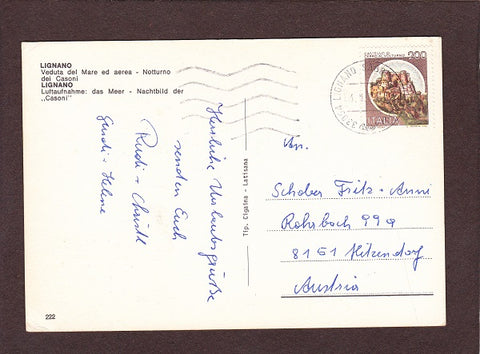 LIGNANO
Veduta del Mare ed aerea - Notturno
dei Casoni
LIGNANO
Luftaufnahme: das Meer - Nachtbild der
„Casoni"
Herzliche Urlaubsgrüße
senden Euch
Rudi + Christl
Gundi + Helene
222
Tip. Cigaina - Latisana
LIGNANO
200
ITALIA
An.
Schober Fritz + Anni
Rohrbach 99a
8151 Hitzendorf
Austria